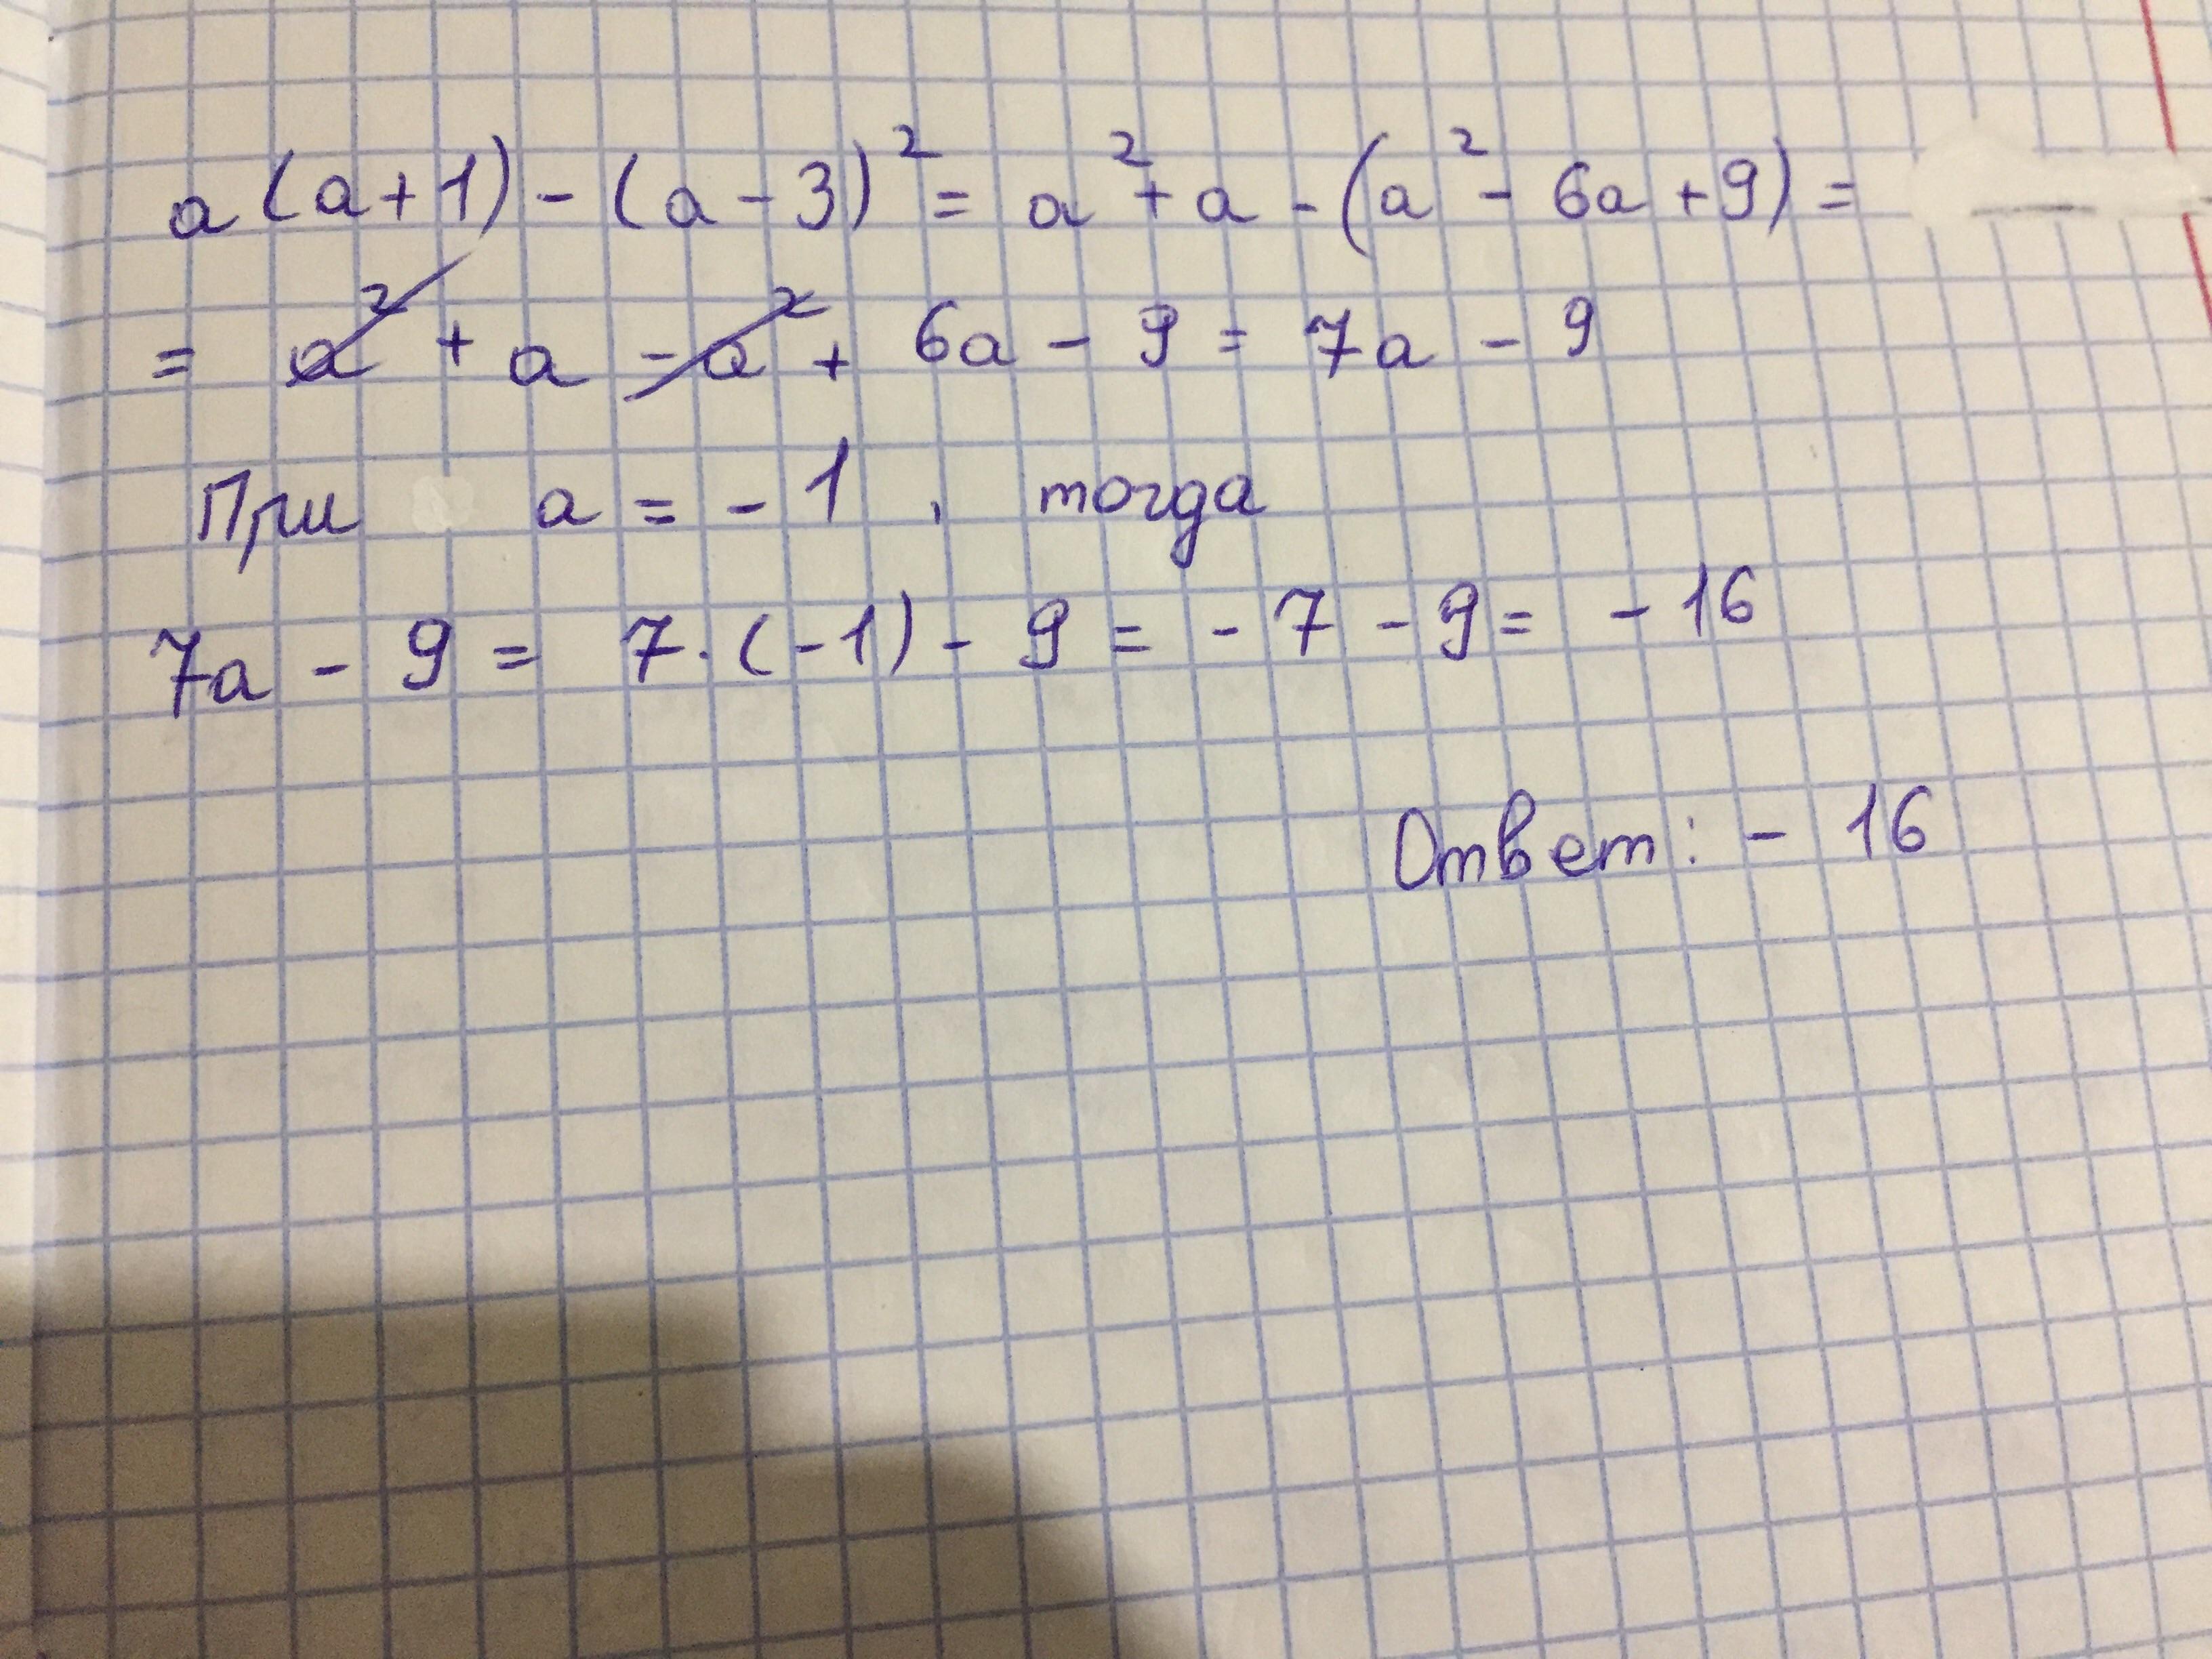 a(a+1)-(a-3)²= a²+a-(a²-6a+9)=
= a²+a-a²+6a-9=7a-9
При a=-1, тогда
7a-9=7·(-1)-9=-7-9=-16
Ответ: -16